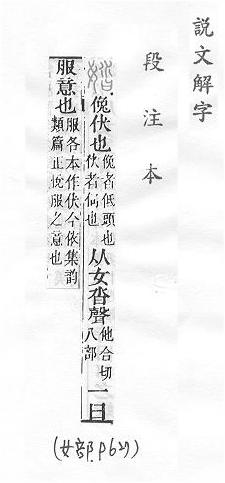 説文解字
段注本
俛伏也俛者低頭也伏者伺也从女沓聲他合切八部一曰
服意也服各本作伏今依集韵類篇正悅服之意也
(女部.P621)